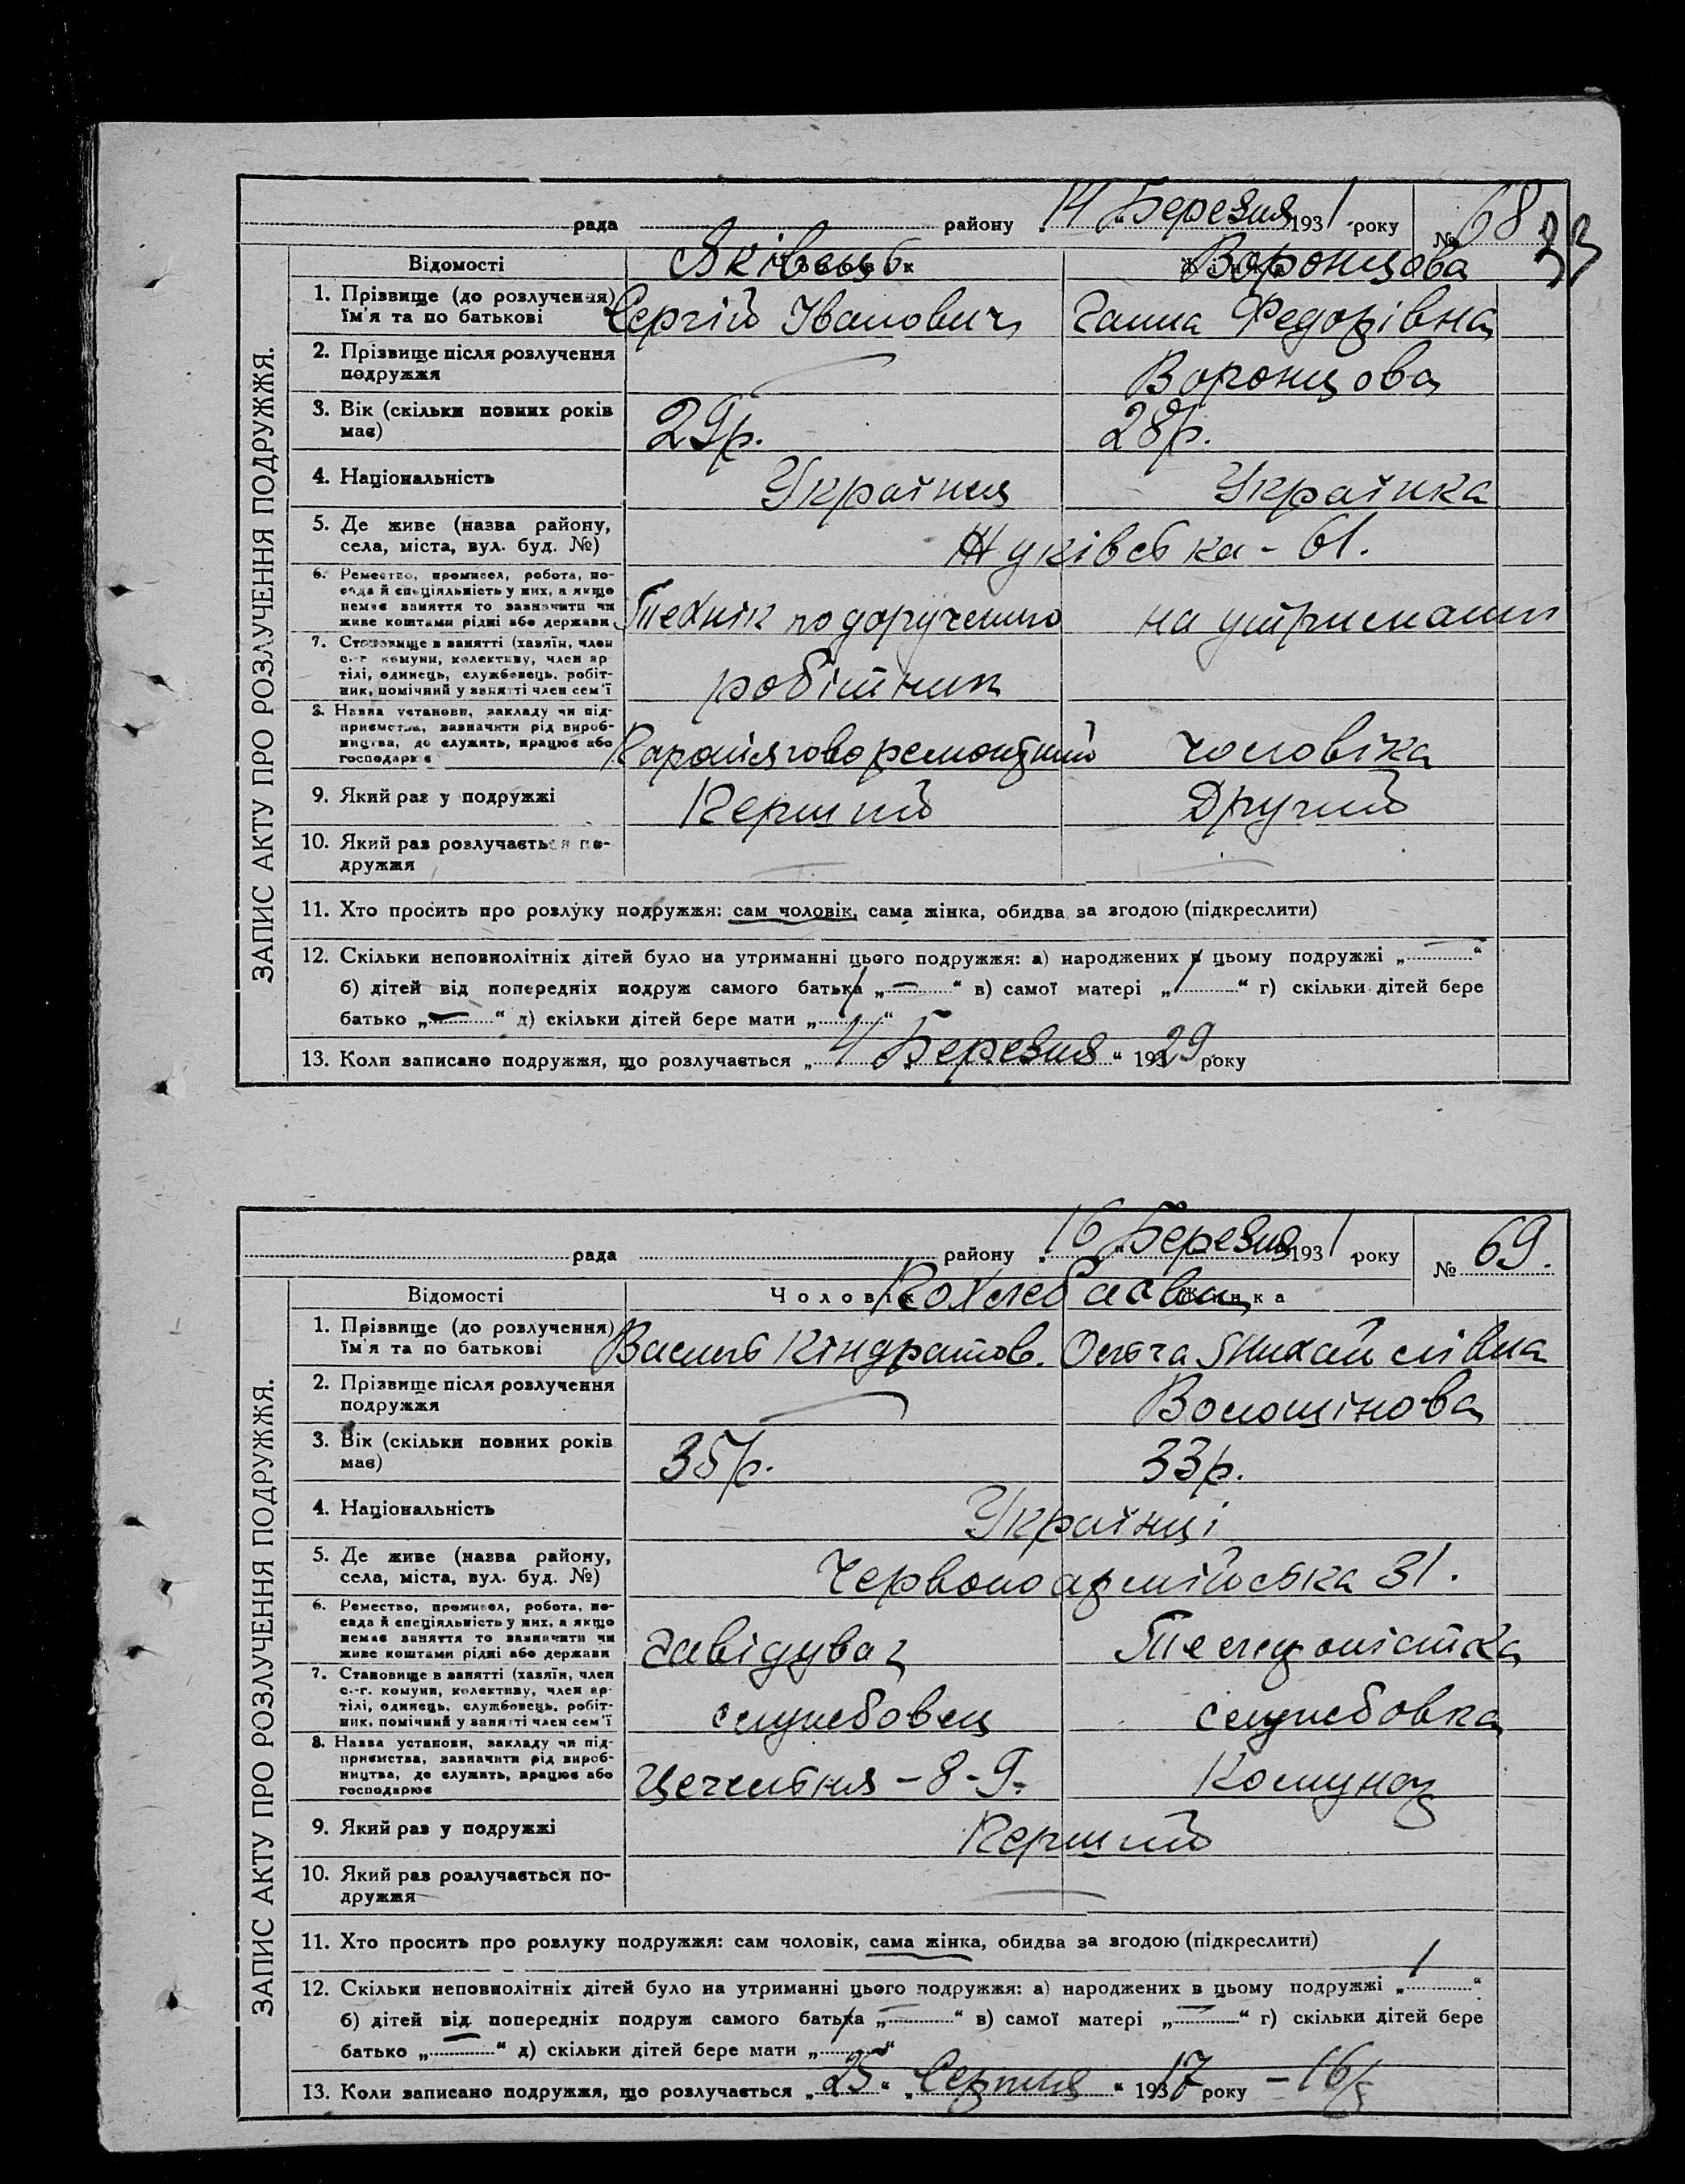 ЗАПИС АКТУ ПРО РОЗЛУЧЕННЯ ПОДРУЖЖЯ.
рада району „14“ Березня 1931 року № 68
33
Відомості Чоловік Жінка
Яківець Воронцова
1. Прізвище (до розлучення) ім'я та по батькові Сергій Іванович Ганна Федорівна
2. Прізвище після розлучення подружжя — Воронцова
3. Вік (скільки повних років має) 29р. 28р.
4. Національність Українец Українка
5. Де живе (назва району, села, міста, вул. буд. №) Жуківська - 61.
6. Ремество, промисел, робота, посада й спеціяльність у них, а якщо немає заняття то зазначити чи живе коштами рідні або держави Технік по доручению на утриманні
7. Становище в занятті (хазяїн, член с.-г. комуни, колективу, член артілі, одинець, службовець, робітник, помічний у занятті член сем'ї робітник
8. Назва установи, закладу чи підприємства, зазначити рід виробництва, де служить, працює або господарює Паротяговоремонтний чоловіка
9. Який раз у подружжі Перший Другий
10. Який раз розлучається подружжя — —
11. Хто просить про розлуку подружжя: сам чоловік, сама жінка, обидва за згодою (підкреслити)
12. Скільки неповнолітніх дітей було на утриманні цього подружжя: а) народжених в цьому подружжі „—“
б) дітей від попередніх подруж самого батька „—“ в) самої матері „1“ г) скільки дітей бере
батько „—“ д) скільки дітей бере мати „1“
13. Коли записано подружжя, що розлучається „4“ „Березня“ 1929 року
ЗАПИС АКТУ ПРО РОЗЛУЧЕННЯ ПОДРУЖЖЯ.
рада району „16“ Березня 1931 року № 69.
Відомості Чоловік Жінка
1. Прізвище (до розлучення) ім'я та по батькові Василь Кіндратов. Ольга Михайлівна
2. Прізвище після розлучення подружжя — Волошінова
3. Вік (скільки повних років має) 35р. 33р.
4. Національність Українці
5. Де живе (назва району, села, міста, вул. буд. №) Червоноармійська 31.
6. Ремество, промисел, робота, посада й спеціяльність у них, а якщо немає заняття то зазначити чи живе коштами рідні або держави Завідувач Телефоністка
7. Становище в занятті (хазяїн, член с.-г. комуни, колективу, член артілі, одинець, службовець, робітник, помічний у занятті член сем'ї службовец службовка
8. Назва установи, закладу чи підприємства, зазначити рід виробництва, де служить, працює або господарює - 8 - 9-
9. Який раз у подружжі Перший
10. Який раз розлучається подружжя —
11. Хто просить про розлуку подружжя: сам чоловік, сама жінка, обидва за згодою (підкреслити)
12. Скільки неповнолітніх дітей було на утриманні цього подружжя: а) народжених в цьому подружжі „1“
б) дітей від попередніх подруж самого батька „—“ в) самої матері „—“ г) скільки дітей бере
батько „—“ д) скільки дітей бере мати „—“
13. Коли записано подружжя, що розлучається „25“ „Серпня“ 1917 року